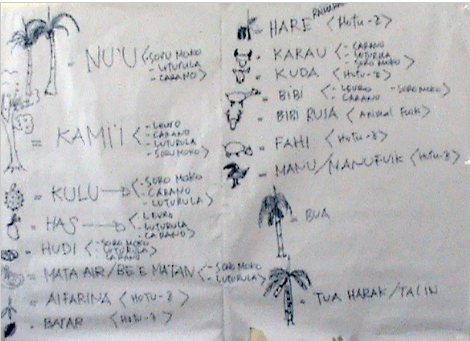 = NU'U <-SORU MOKO
- LUTURULA
- CARANO>
= KAMI'I <- LEURO
- CARANO
- LUTURULA
- SORU MOKO>
= KULU → <- SORO MOKO
- CARANO
- LUTURULA>
= HAS → <LEURO
- LUTURULA
- CARANO>
= HUDI <-SORO MOKO
LUTURULA
CARANO>
= MATA AIR/BE E MATAN <-SORO MOKO
- LUTURULA>
= AIFARINA <HOTU-2>
= BATAR <HOTU-2>
= HARE <HOTU-2>
= KARAU <- CARANO
- LUTURULA
- SORO MOKO>
= KUDA <HOTU-2>
= BIBI <- LEURO - SORO MOKO>
- CARANO
= BIBI RUSA <Animal Fuik>
= FAHI <HOTU-2>
= MANU/MANUFUIK <HOTU-2>
= BUA
= TUA HARAK/TALIN